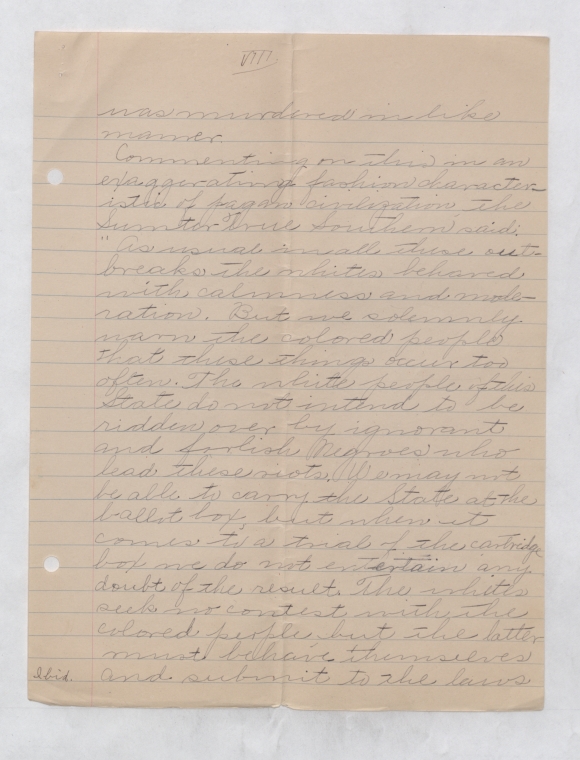 VIII
was murdered in like
manner.
Commenting on this in an
exaggerating fashion character-
istic of pagan civilization the
Sumter True Southern said:
"As usual in all these out-
breaks the whites behaved
with calmness and mode-
ration. But we solemnly
warn the colored people
that these things occur too
often. The white people of this
State do not intend to be
ridden over by ignorant
and foolish Negroes who
lead these riots. We may not
be able to carry the State at the
ballot box, but when it
comes to a trial of the cartridge
box we do not entertain any
doubt of the result. The whites
seek no contest with the
colored people but the latter
must behave themselves
Ibid. and submit to the laws